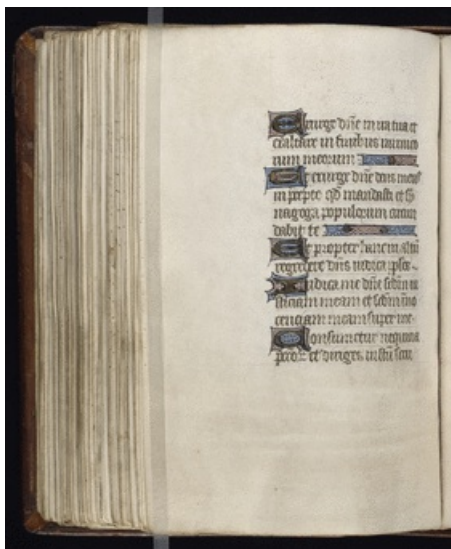 Exurge dñe in ira tua et
exaltare in finibus inimico
rum meorum
Et exurge dñe deus meus
in precepto qd mandasti et si
nagoga populorum circum
dabit te
Et propter hanc in altū
regredere dñs iudica pplos
Iudica me dñe scdm iu
sticiam meam et scdm īno
cenciam meam super me
Consumetur nequicia
pctoꝝ et diriges iustū scru